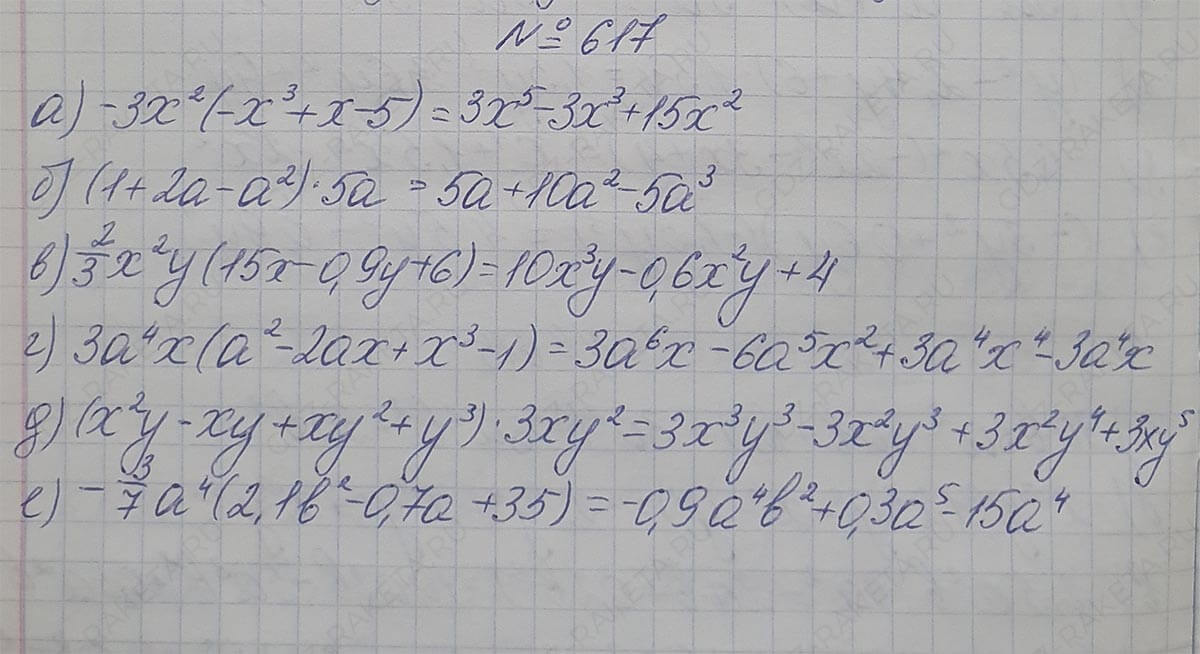 № 617
а) -3x²(-x³+x-5)=3x⁵-3x³+15x²
б) (1+2a-a²)·5a = 5a+10a²-5a³
в) 2/3 x²y(15x-0,9y+6)=10x³y-0,6x²y+4
г) 3a⁴x(a²-2ax+x³-1)=3a⁶x-6a⁵x²+3a⁴x⁴-3a⁴x
д) (x²y-xy+xy²+y³)·3xy²=3x³y³-3x²y³+3x²y⁴+3xy⁵
е) -3/7 a⁴(2,1в²-0,7a+35)=-0,9a⁴в²+0,3a⁵-15a⁴